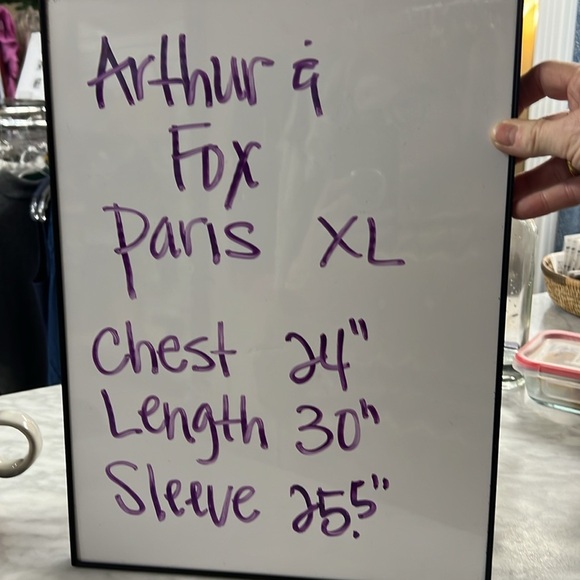 Arthur &
Fox
Paris XL
Chest 24"
Length 30"
Sleeve 25.5"